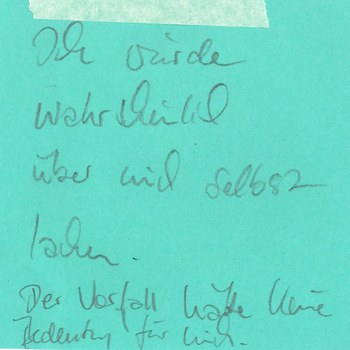 Ich würde
wahrscheinlich
über mich selbst
lachen.
Der Vorfall hätte keine
Bedeutung für mich.